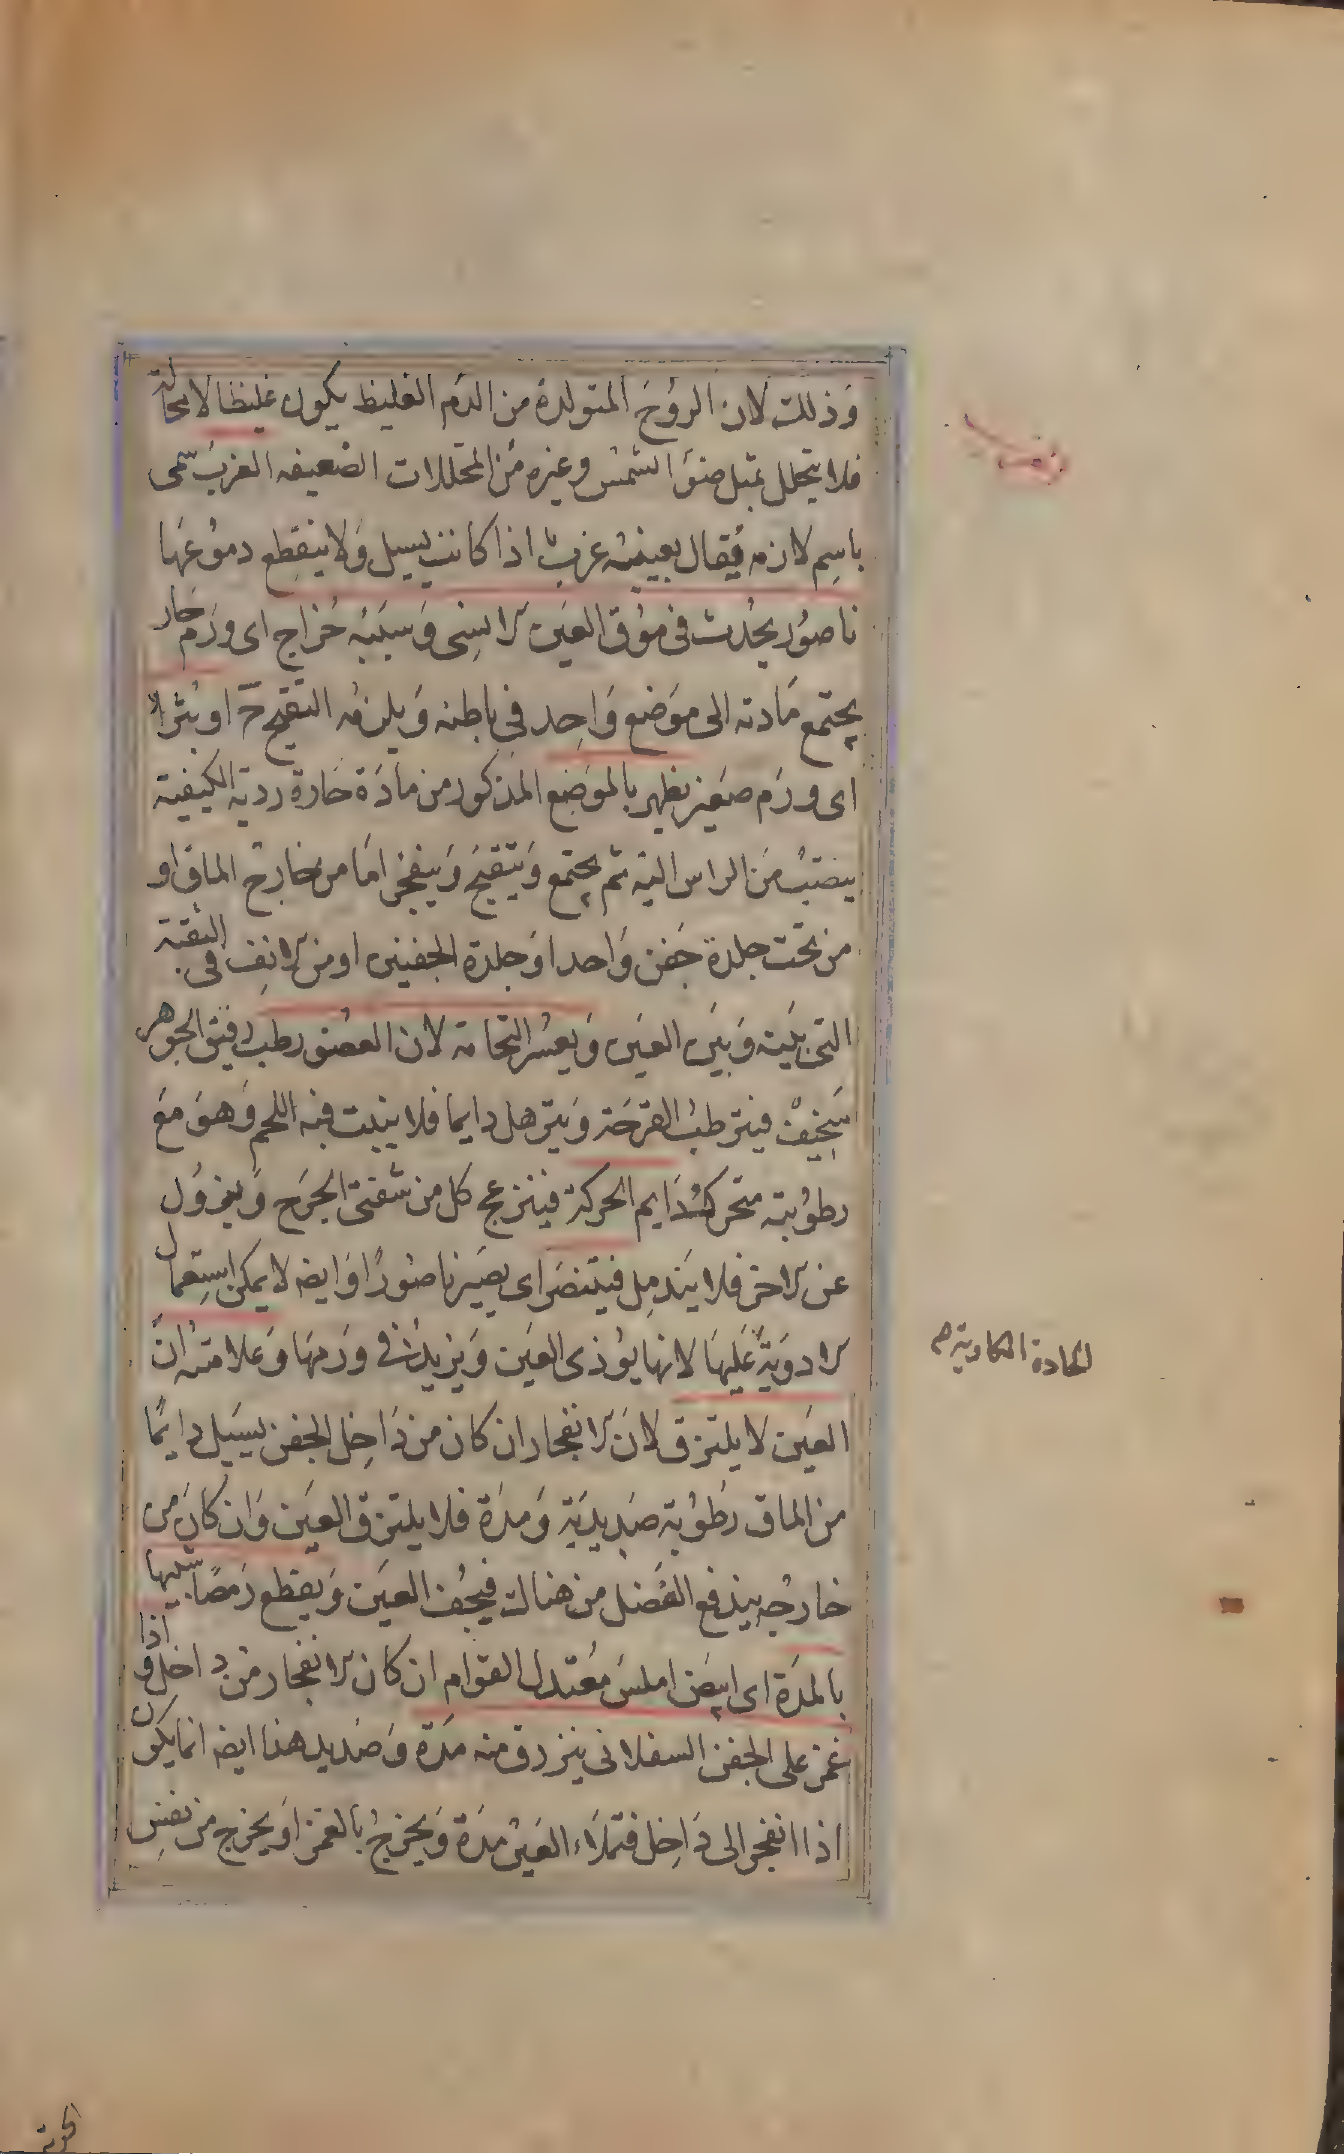 وَذلك لان الروُحَ المتولدة من الدم الغليظ يكون غليظا لامحالة
فلا يتحلل بمثل ضوَء الشمس وغيره مَن المحللات الضعيفه الغرب سمّى
باسِم لازمه فيُقال بعينه غرب اذا كانت يسيل وَلا ينقطع دموُعَها
ناصُور يحدُث فى موُق العيَن الانسِى وَسبَبُه خُراج اى ورَم حَار
يجتمع مَادته الى موَضع وَاحِد فى باطنه وَيلزمُه التقيّح حَ او بثرا
اى ورَم صغير يظهر بالموَضع المذكور من مادَة حَارة ردية الكيفية
ينصَبُّ مَن الراس اليه ثم يجتمع وَيتقيح وَينفجر امَا من خارج الماق او
من تحت جلدة جَفن وَاحد اوَ جلدة الجفنين او من الانِف فى الثقبة
التى بَينَه وَبيَن العيَن وَيعسُر التحامه لان العضو رطب رقيق الجوَهر
سَخيف فيترطبُ القرحَة وَيترهل دايما فلا ينبت فيه اللحم وَهوَ معَ
رطوُبته متحرك دَايم الحركة فينزعج كل من شفتى الجرَح وَيزوُل
عن الاخر فلا يَندمِل فيتنصرَ اى يصيَر ناصُورًا وَايضه لا يمكن استِعمال
الادوَية عَليهَا لانها يوُذى العيَن وَيزيدُ فى ورَمهَا وَعلامتُه انَّ
العيَن لا يلتزق لانَ الانفجار ان كان من دَاخِل الجفن يسيَل دايمًا
من الماق رطوُبة صَديديَة وَمدَة فلا يلتزق العيَن وَان كانَ من
خارجُه يندفع الفضَل من هناك فيجُف العيَن وَيقطع رَمصًا شبيها
بالمدَة اى ابيَض املسَ معَتدل القوام ان كان الانفجار من داخل وَاذا
غمز على الجفن السفلانى ينزرق منه مدَة وَصَديد هذا ايضه انما يكون
اذا انفجر الى دَاخِل فتملَاء العيَن مدَة وَيخرجُ بالغمز اوَ يخرج من نفسِ
الحادة الكاوية م